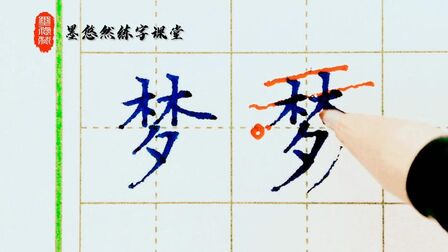 墨悠然练字课堂
梦 梦